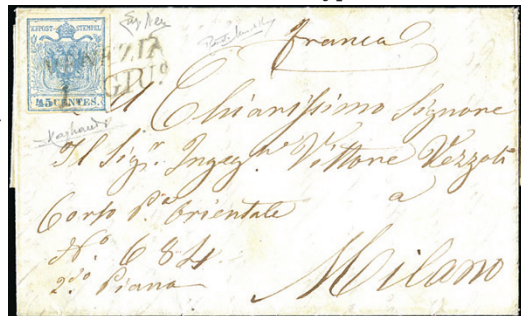 KKPOST-STEMPEL
45 CENTES.
VENEZIA
GIU.º
franca
Al Chiarissimo Signore
Il Sigr. Ingegnre Vittore Vezzoli
Corso Pa. Orientale
a
Nº 684
2do Piano
Milano